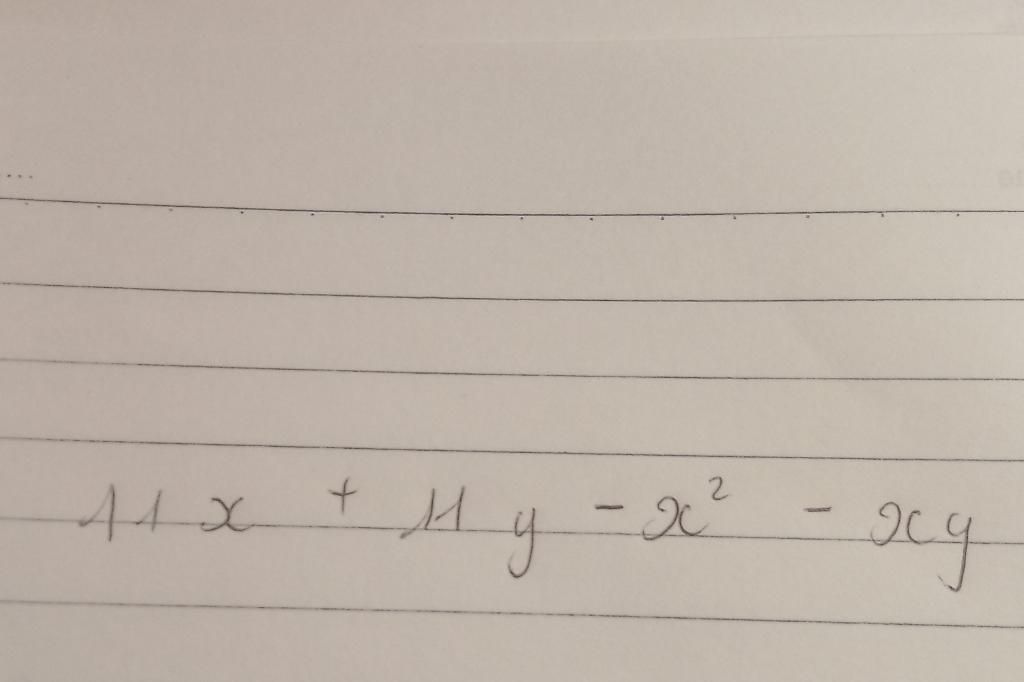 11x + 11y - x² - xy